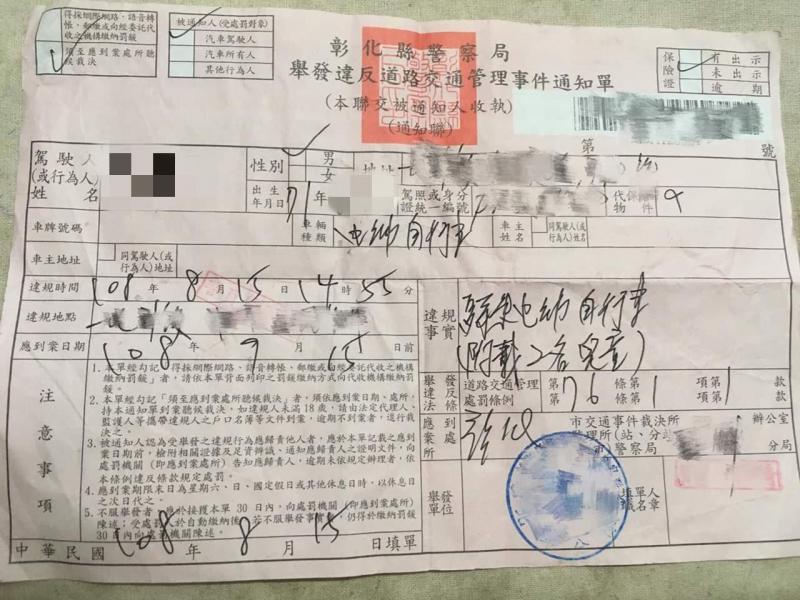 得採網際網路、語音轉
帳、郵繳或向經委託代
收之機構繳納罰鍰
須至應到案處所聽
候裁決
被通知人(受處罰對象)
汽車駕駛人
汽車所有人
其他行為人
彰化縣警察局
舉發違反道路交通管理事件通知單
(本聯交被通知人收執)
(通知聯)
保險證
有出示
未出示
逾期
第 號
駕駛人
(或行為人)
姓名
性別
男
女
地址
出生
年月日
71年
駕照或身分
證統一編號
代保
物件
車牌號碼
車輛
種類
電動自行車
車主
姓名
同駕駛人(或
行為人)姓名
車主地址
同駕駛人(或
行為人)地址
違規時間
108年8月15日14時55分
違規地點
違規
事實
騎乘電動自行車
(附載2名兒童)
應到案日期
108年9月15日前
注意事項
1.本單經勾記「得採網際網路、語音轉帳、郵繳或向經委託代收之機構
繳納罰鍰」者,請依本單背面列印之罰鍰繳納方式向代收機構繳納罰
鍰。
2.本單經勾記「須至應到案處所聽候裁決」者,須依應到案日期、處所,
持本通知單到案聽候裁決,如違規人未滿18歲,請由法定代理人、
監護人等攜帶違規人之戶口名簿等文件到案,逾期不到案者,逕行裁
決之。
3.被通知人認為受舉發之違規行為應歸責他人者,應於本單記載之應到
案日期前,檢附相關證據及足資辨識、通知應歸責人之證明文件,向
處罰機關(即應到案處所)告知應歸責人,逾期未依規定辦理者,依
本條例違反條款規定處罰。
4.應到案期限末日為星期六、日、國定假日或其他休息日時,以休息日
之次日代之。
5.不服舉發者,應於接獲本單30日內,向處罰機關(即應到案處所)
陳述;受處罰人於自動繳納後,若不服舉發事實者,仍得於繳納罰鍰
30日內向處罰機關陳述。
舉發
違反
法條
道路交通管理
處罰條例
第76條第1項第1款
款
應到
案處
所
彰化
市交通事件裁決所
監理所(站、分站)
市警察局
辦公室
分局
舉發
單位
填單人
職名章
中華民國108年8月15日填單